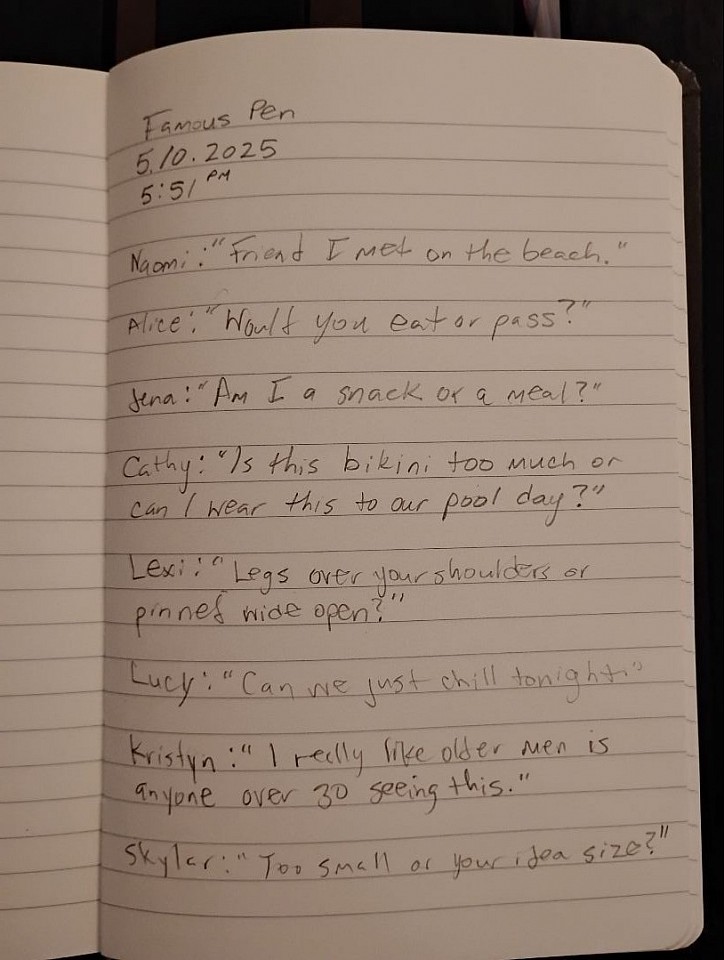 Famous Pen
5.10.2025
5:51 PM
Naomi: "Friend I met on the beach."
Alice: "Would you eat or pass?"
Jena: "Am I a snack or a meal?"
Cathy: "Is this bikini too much or
can I wear this to our pool day?"
Lexi: "Legs over your shoulders or
pinned wide open?"
Lucy: "Can we just chill tonight."
Kristyn: "I really like older men is
anyone over 30 seeing this."
Skylar: "Too small or your idea size?"